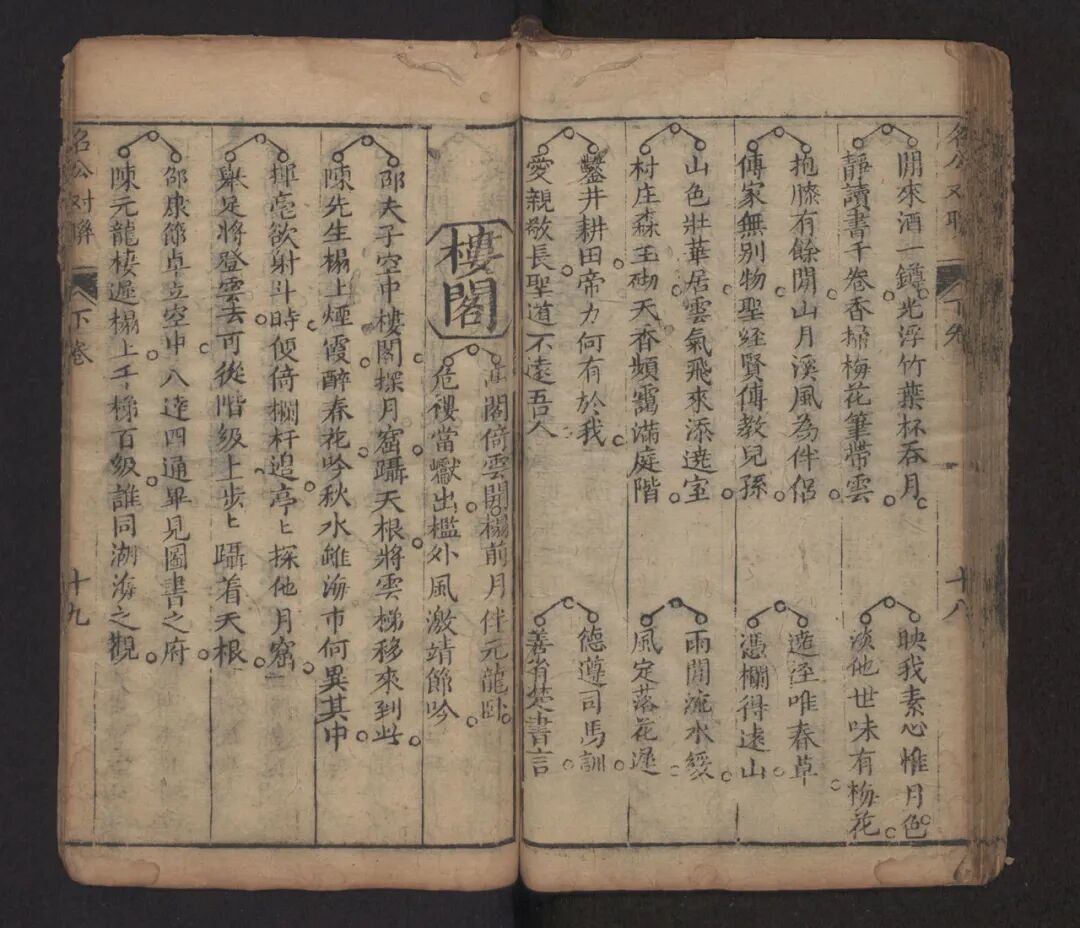 名公对聯
下卷
十八
閒來酒一鐏光浮竹葉杯吞月
靜讀書千卷香掃梅花筆帶雲
映我素心惟月色
淡他世味有梅花
抱膝有餘閒山月溪風為伴侶
傳家無別物聖經賢傳教兒孫
遶逕唯春草
憑欄得遠山
山色壯華居雲氣飛來添遶室
村庄森玉砌天香頻靄滿庭階
雨閒流水緩
風定落花遲
鑿井耕田帝力何有於我
愛親敬長聖道不遠吾人
德遵司馬訓
善省楚書言
樓閣
高閣倚雲開榻前月伴元龍卧
危樓當巘出檻外風激靖節吟
邵夫子空中樓閣探月窟躡天根將雲梯移來到此
陳先生榻上煙霞醉春花吟秋水雖海市何異其中
揮毫欲射斗時便倚欄杆追亭〻探他月窟
舉足將登雲去可從階級上步〻躡着天根
邵康節卓立空中八達四通畢見圖書之府
陳元龍棲遲榻上千梯百級誰同湖海之觀
名公对聯
下卷
十九